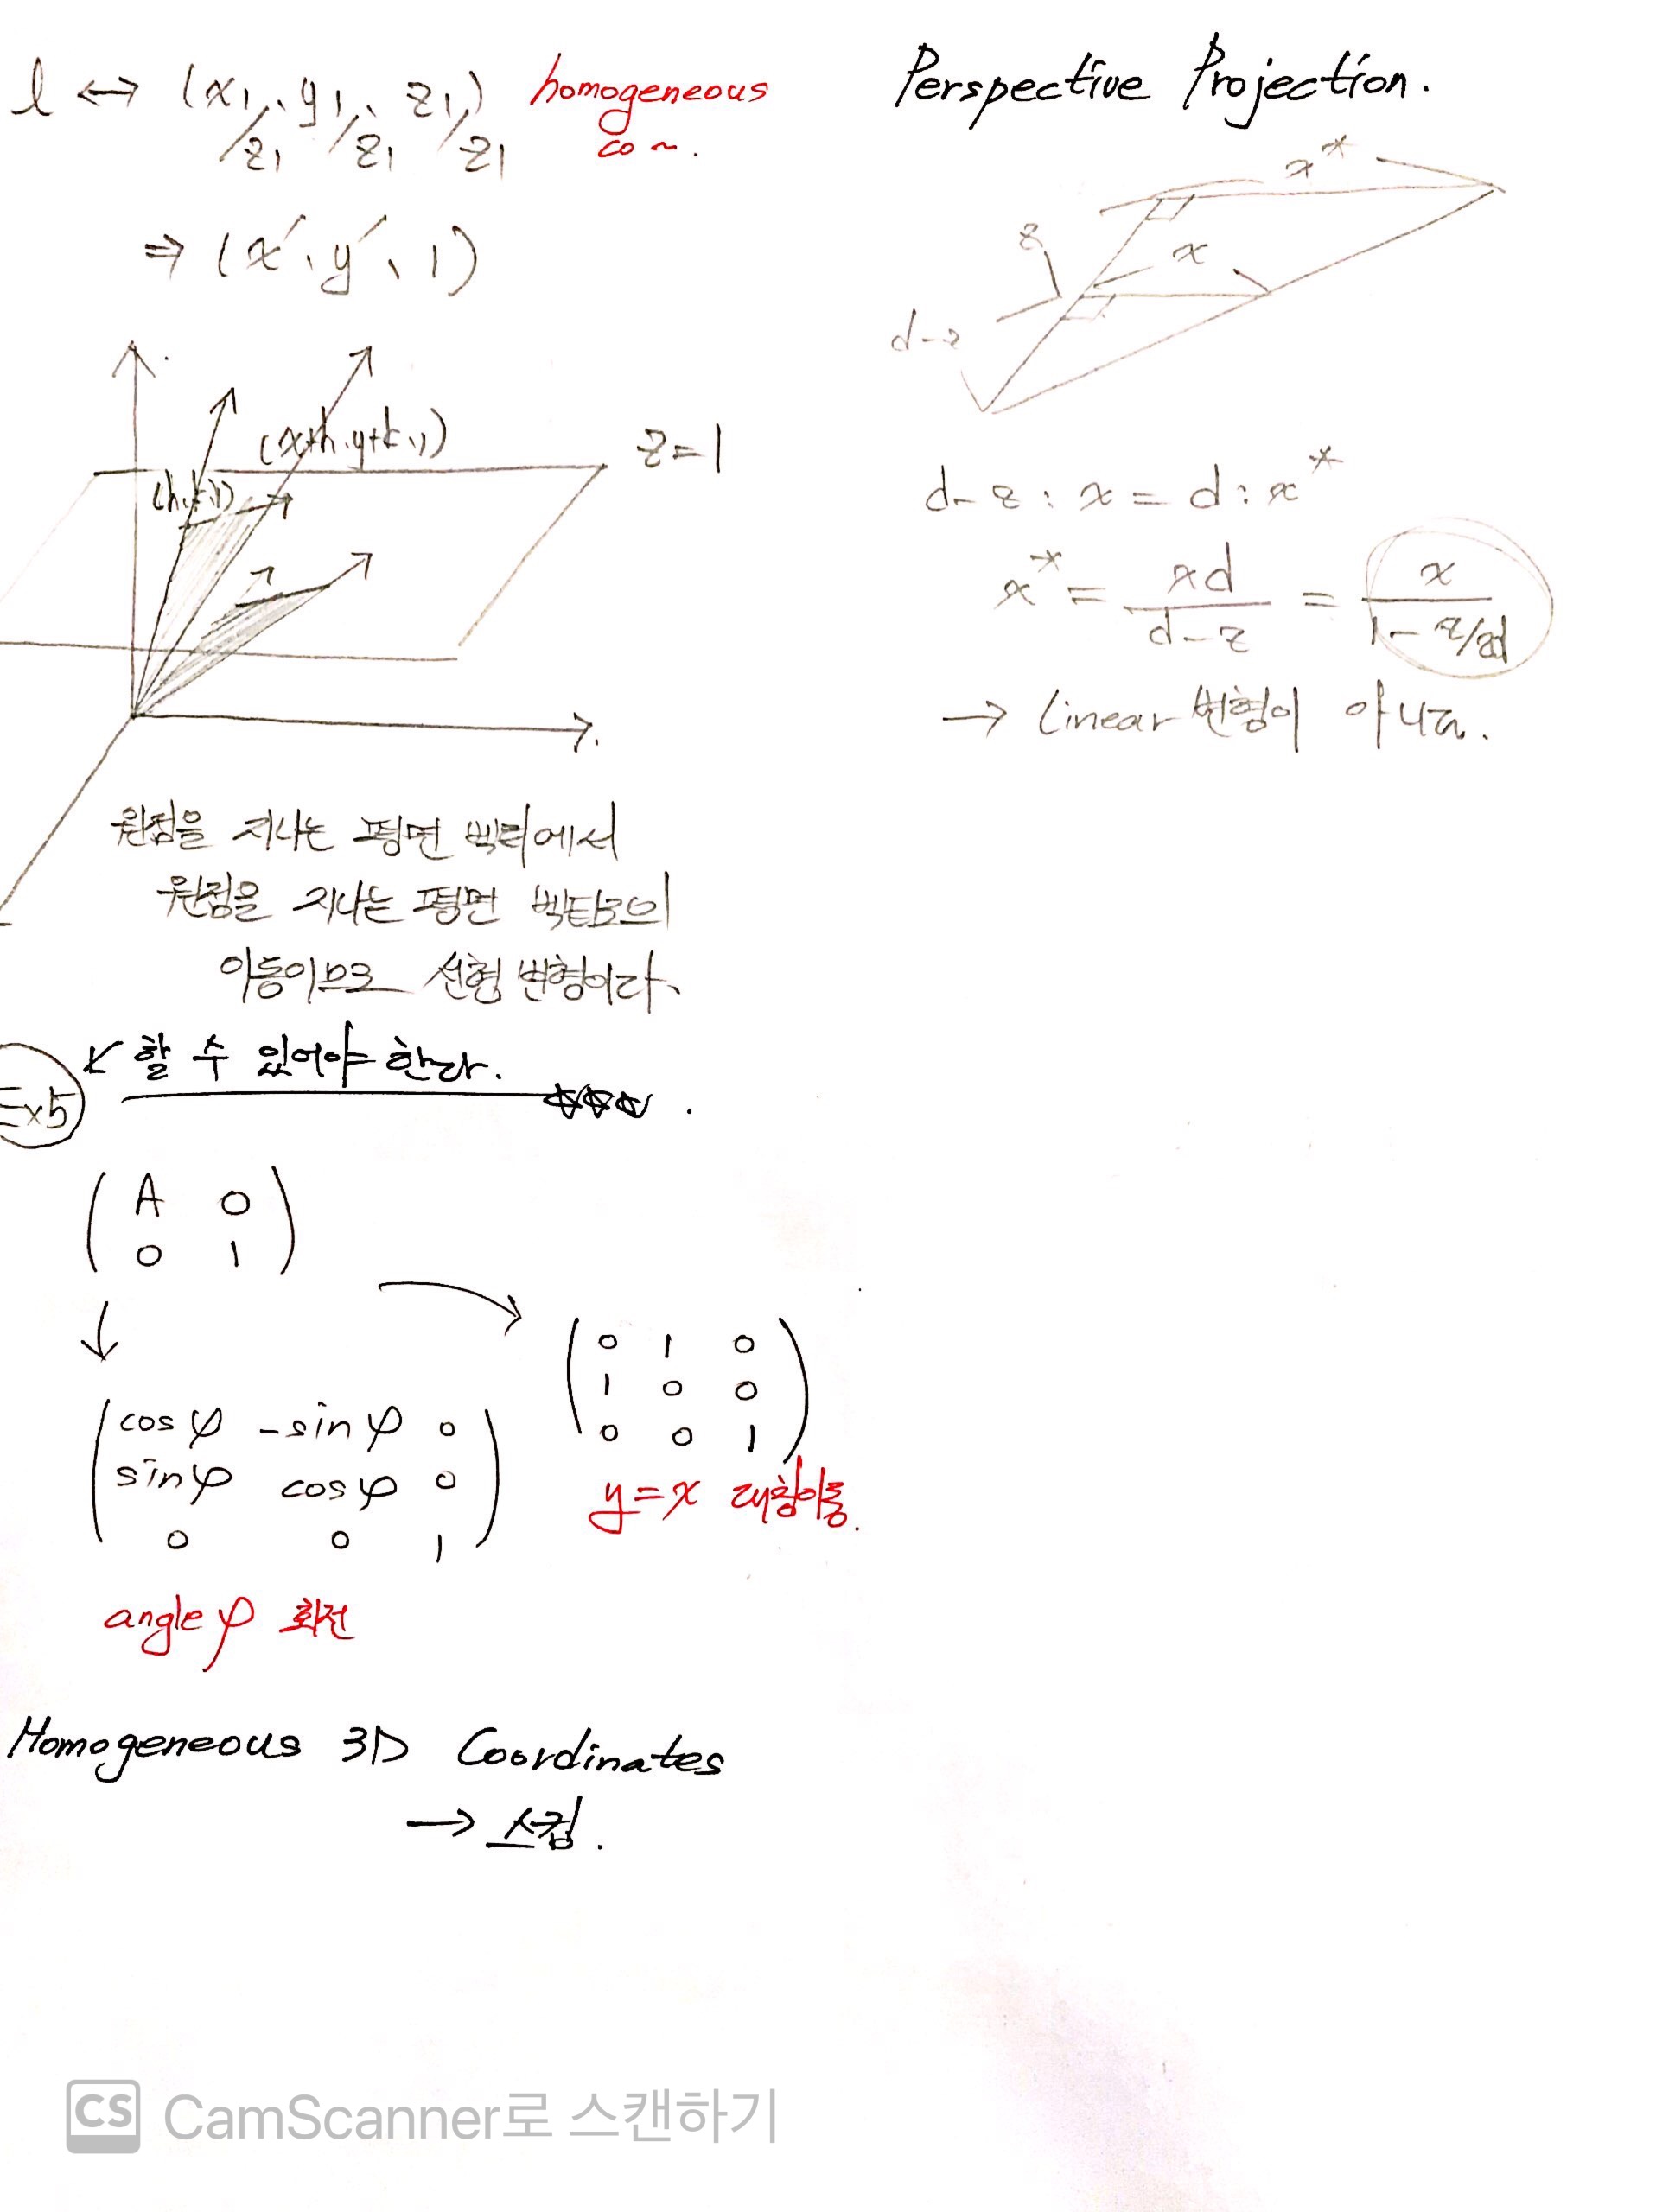 l ↔ (x₁/z₁, y₁/z₁, z₁/z₁) homogeneous
co ~.
⇒ (x′, y′, 1)
(x+h, y+k, 1)
(h, k, 1)
z=1
원점을 지나는 평면 벡터에서
원점을 지나는 평면 벡터로의
이동이므로 선형 변형이다.
Ex5
↙ 할 수 있어야 한다. ☆☆☆.
( A 0
0 1 )
↓ →
( 0 1 0
1 0 0
0 0 1 )
y=x 대칭이동.
( cosφ -sinφ 0
sinφ cosφ 0
0 0 1 )
angle φ 회전
Homogeneous 3D Coordinates
→ 스킵.
Perspective Projection.
x*
z
x
d-z
d-z : x = d : x*
x* = xd/(d-z) = x/(1-z/d)
→ Linear 변형이 아니다.
CS CamScanner로 스캔하기